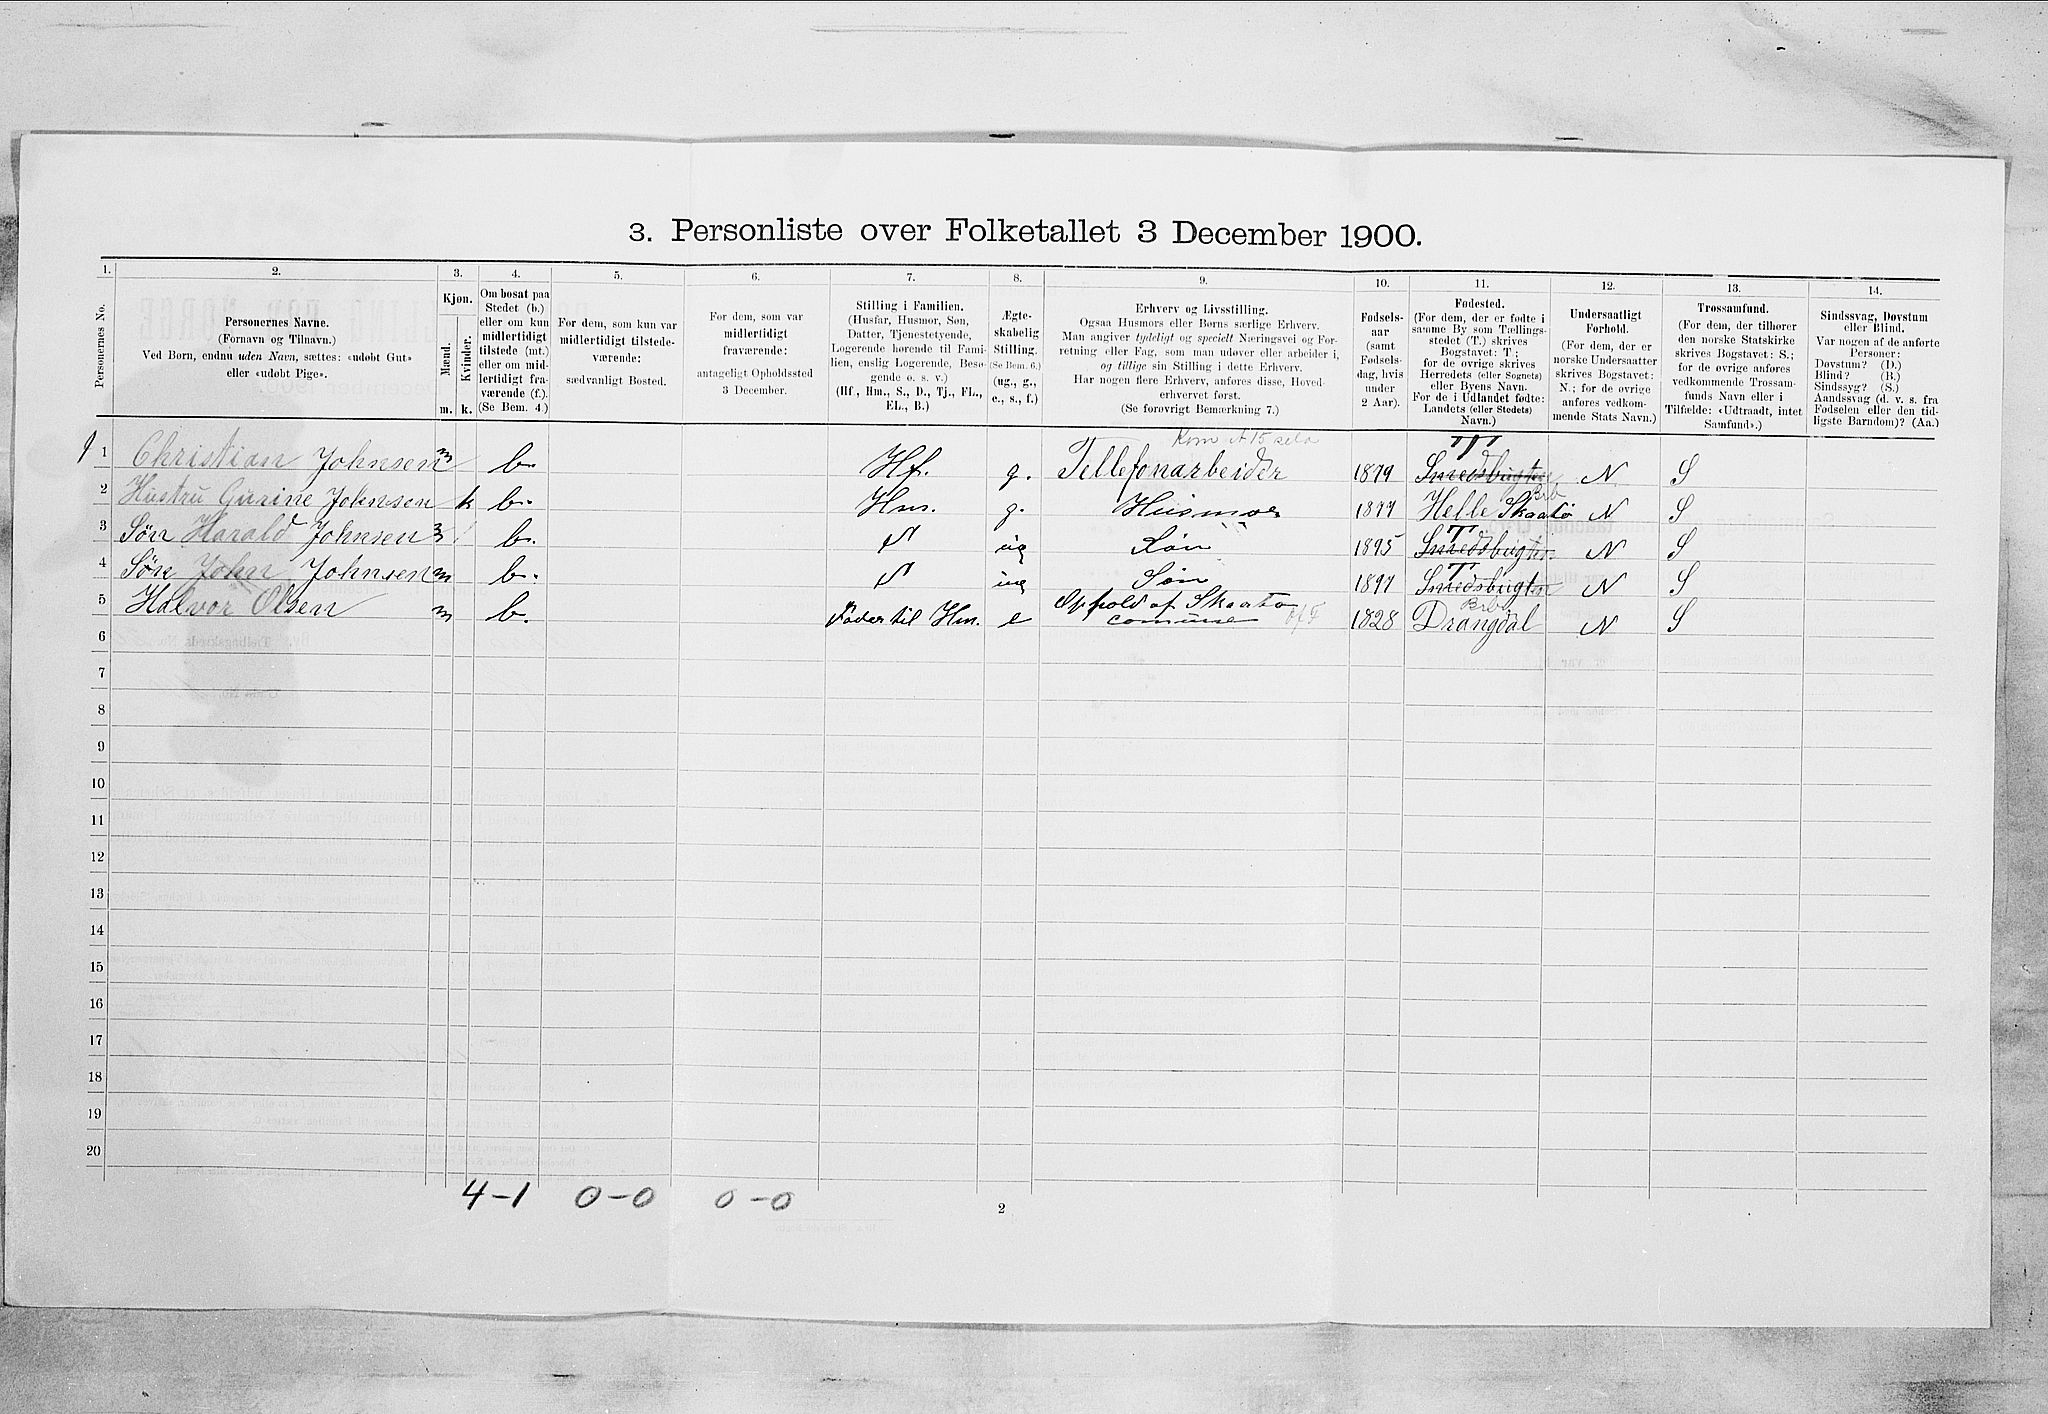 3. Personliste over Folketallet 3 December 1900.
1. 2. 3. 4. 5. 6. 7. 8. 9. 10. 11. 12. 13. 14.
Personernes No.
Personernes Navne.
(Fornavn og Tilnavn.)
Ved Børn, endnu uden Navn, sættes: «udøbt Gut»
eller «udøbt Pige».
Kjøn.
Mænd.
Kvinder.
m. k.
Om bosat paa
Stedet (b.)
eller om kun
midlertidigt
tilstede (mt.)
eller om mid-
lertidigt fra-
værende (f.).
(Se Bem. 4.)
For dem, som kun var
midlertidigt tilstede-
værende:
sædvanligt Bosted.
For dem, som var
midlertidigt
fraværende:
antageligt Opholdssted
3 December.
Stilling i Familien.
(Husfar, Husmor, Søn,
Datter, Tjenestetyende,
Logerende hørende til Fami-
lien, enslig Logerende, Besø-
gende o. s. v.)
(Hf., Hm., S., D., Tj., FL.,
EL., B.)
Ægte-
skabelig
Stilling.
(Se Bem. 6.)
(ug., g.,
e., s., f.)
Erhverv og Livsstilling.
Ogsaa Husmors eller Børns særlige Erhverv.
Man angiver tydeligt og specielt Næringsvei og For-
retning eller Fag, som man udøver eller arbeider i,
og tillige sin Stilling i dette Erhverv.
Har nogen flere Erhverv, anføres disse, Hoved-
erhvervet først.
(Se forøvrigt Bemærkning 7.)
Fødsels-
aar
(samt
Fødsels-
dag, hvis
under
2 Aar).
Fødested.
(For dem, der er fødte i
samme By som Tællings-
stedet (T.) skrives
Bogstavet: T;
for de øvrige skrives
Herredets (eller Sognets)
eller Byens Navn.
For de i Udlandet fødte:
Landets (eller Stedets)
Navn.)
Undersaatligt
Forhold.
(For dem, der er
norske Undersaatter
skrives Bogstavet:
N.; for de øvrige
anføres vedkom-
mende Stats Navn.)
Trossamfund.
(For dem, der tilhører
den norske Statskirke
skrives Bogstavet: S.;
for de øvrige anføres
vedkommende Trossam-
funds Navn eller i
Tilfælde: «Udtraadt, intet
Samfund».)
Sindssvag, Døvstum
eller Blind.
Var nogen af de anførte
Personer:
Døvstum? (D.)
Blind? (B.)
Sindssyg? (S.)
Aandssvag (d. v. s. fra
Fødselen eller den tid-
ligste Barndom)? (Aa.)
1 Christian Johnsen m b. Hf. g. Tellefonarbeider 1879 T Smedsbugten N S
2 Hustru Johnsen k b. Hm. g. Husmor 1877 Helle Skaatø N S
3 Søn Harald Johnsen m b. S ug Søn 1895 T Smedsbugten N S
4 Søn John Johnsen m b. S ug Søn 1897 T Smedsbugten N S
5 Halvor Olsen m b. Fader til Hm. e Ophold af Skaatø
comune 1828 Drangdal N S
6
7
8
9
10
11
12
13
14
15
16
17
18
19
20
4-1 0-0 0-0
2